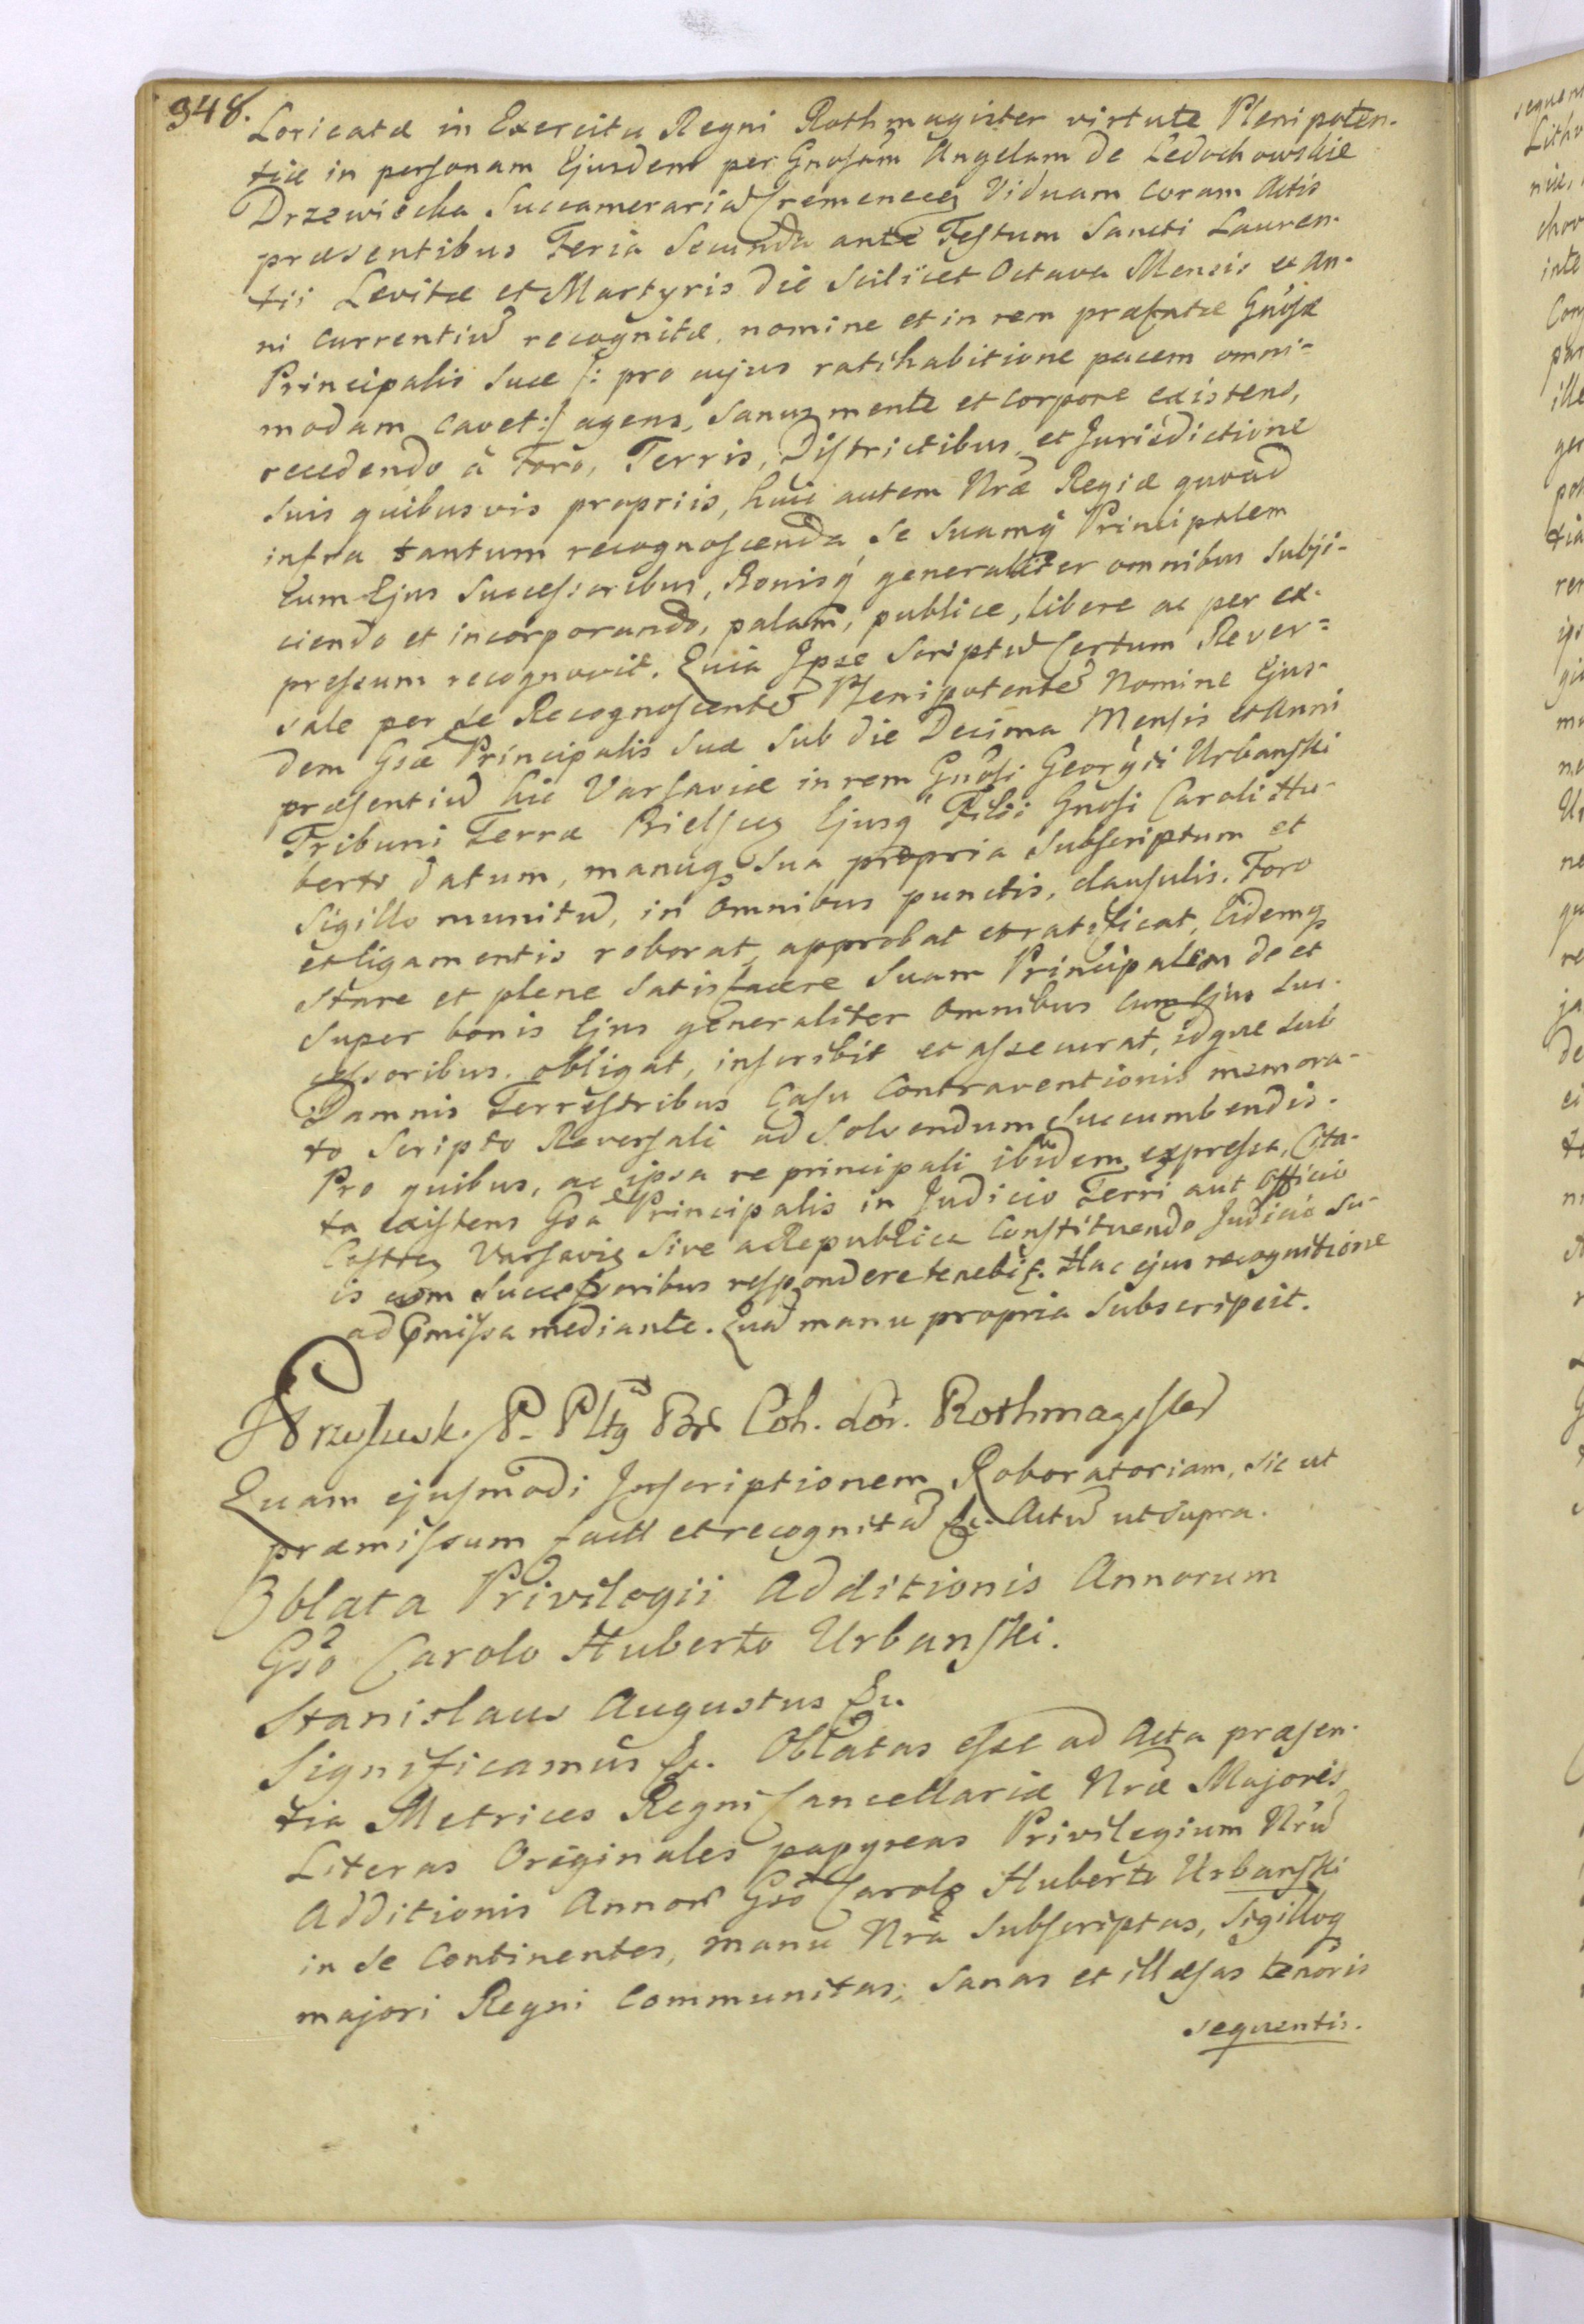 348.
Loricatæ in Exercitu Regni Rothmagister virtute Plenipoten-
tiæ in personam Ejusdem per Gnosam Angelam de Ledochowskie
Drzewiecka Succamerariam Cremenecen Viduam coram Actis
præsentibus Feria Secunda ante Festum Sancti Lauren-
tii Levitæ et Martyris die Scilicet Octava Mensis et An-
ni currentium recognitæ, nomine et in rem præfatæ Gnosæ
Principalis Suæ /: pro cujus ratihabitione pacem omni-
modam cavet :/ agens, Sanus mente et corpore existens,
recedendo à Foro, Terris, Districtibus, et Jurisdictione
Suis quibusvis propriis, huic autem Nræ Regiæ quoad
infra tantum recognoscenda, Se Suamq Principalem
Cum Ejus Successoribus, Bonisq generaliter omnibus Subji-
ciendo et incorporando, palam, publice, libere ac per ex-
pressum recognovit. Quia Ipse Scriptum Certum Rever=
sale per Se Recognoscentem Plenipotentem Nomine Ejus-
dem Gsæ Principalis Suæ Sub die Decima Mensis et Anni
præsentium hic Varsaviæ in rem Gnosi Georgii Urbanski
Tribuni Terræ Bielscen Ejusq Filii Gnosi Caroli Hu-
berti datum, manuq Sua propria Subscriptum et
Sigillo munitum, in Omnibus punctis, clausulis. Foro
et ligamentis roborat, approbat et ratificat, Eidemq
Stare et plene Satisfacere Suam Principalem de et
Super bonis Ejus generaliter Omnibus cum Ejus Suc-
cessoribus. obligat, inscribit et assecurat, idque sub
Damnis Terrestribus Casu Contraventionis memora-
to Scripto Reversali ad Solvendum Succumbendis.
Pro quibus, ac ipsa re principali ibidem expressa, Cita-
ta existens Gsa Principalis in Judicio Terri aut Officio
Castren Varsavien Sive a Republica Constituendo Judicio Su-
is cum Successoribus respondere tenebit. Hac ejus recognitione
ad præmissa mediante. Quam manu propria Subscripsit.
P. Coh. Lor. Rothmagister
Quam ejusmodi Inscriptionem Roboratoriam, sic ut
præmissum factam et recognitam &c. Actum ut Supra.
Oblata Privilegii Additionis Annorum
Gso Carolo Huberto Urbanski.
Stanislaus Augustus &c.
Significamus &c. Oblatas esse ad Acta præsen-
tia Metrices Regni Cancellariæ Nræ Majoris
Literas Originales papyreas Privilegium Nrum
Additionis Annorum Gso Carolo Huberto Urbanski
in Se Continentes, manu Nra Subscriptas, Sigilloq
majori Regni Communitas; Sanas et illæsas tenoris
sequentis.